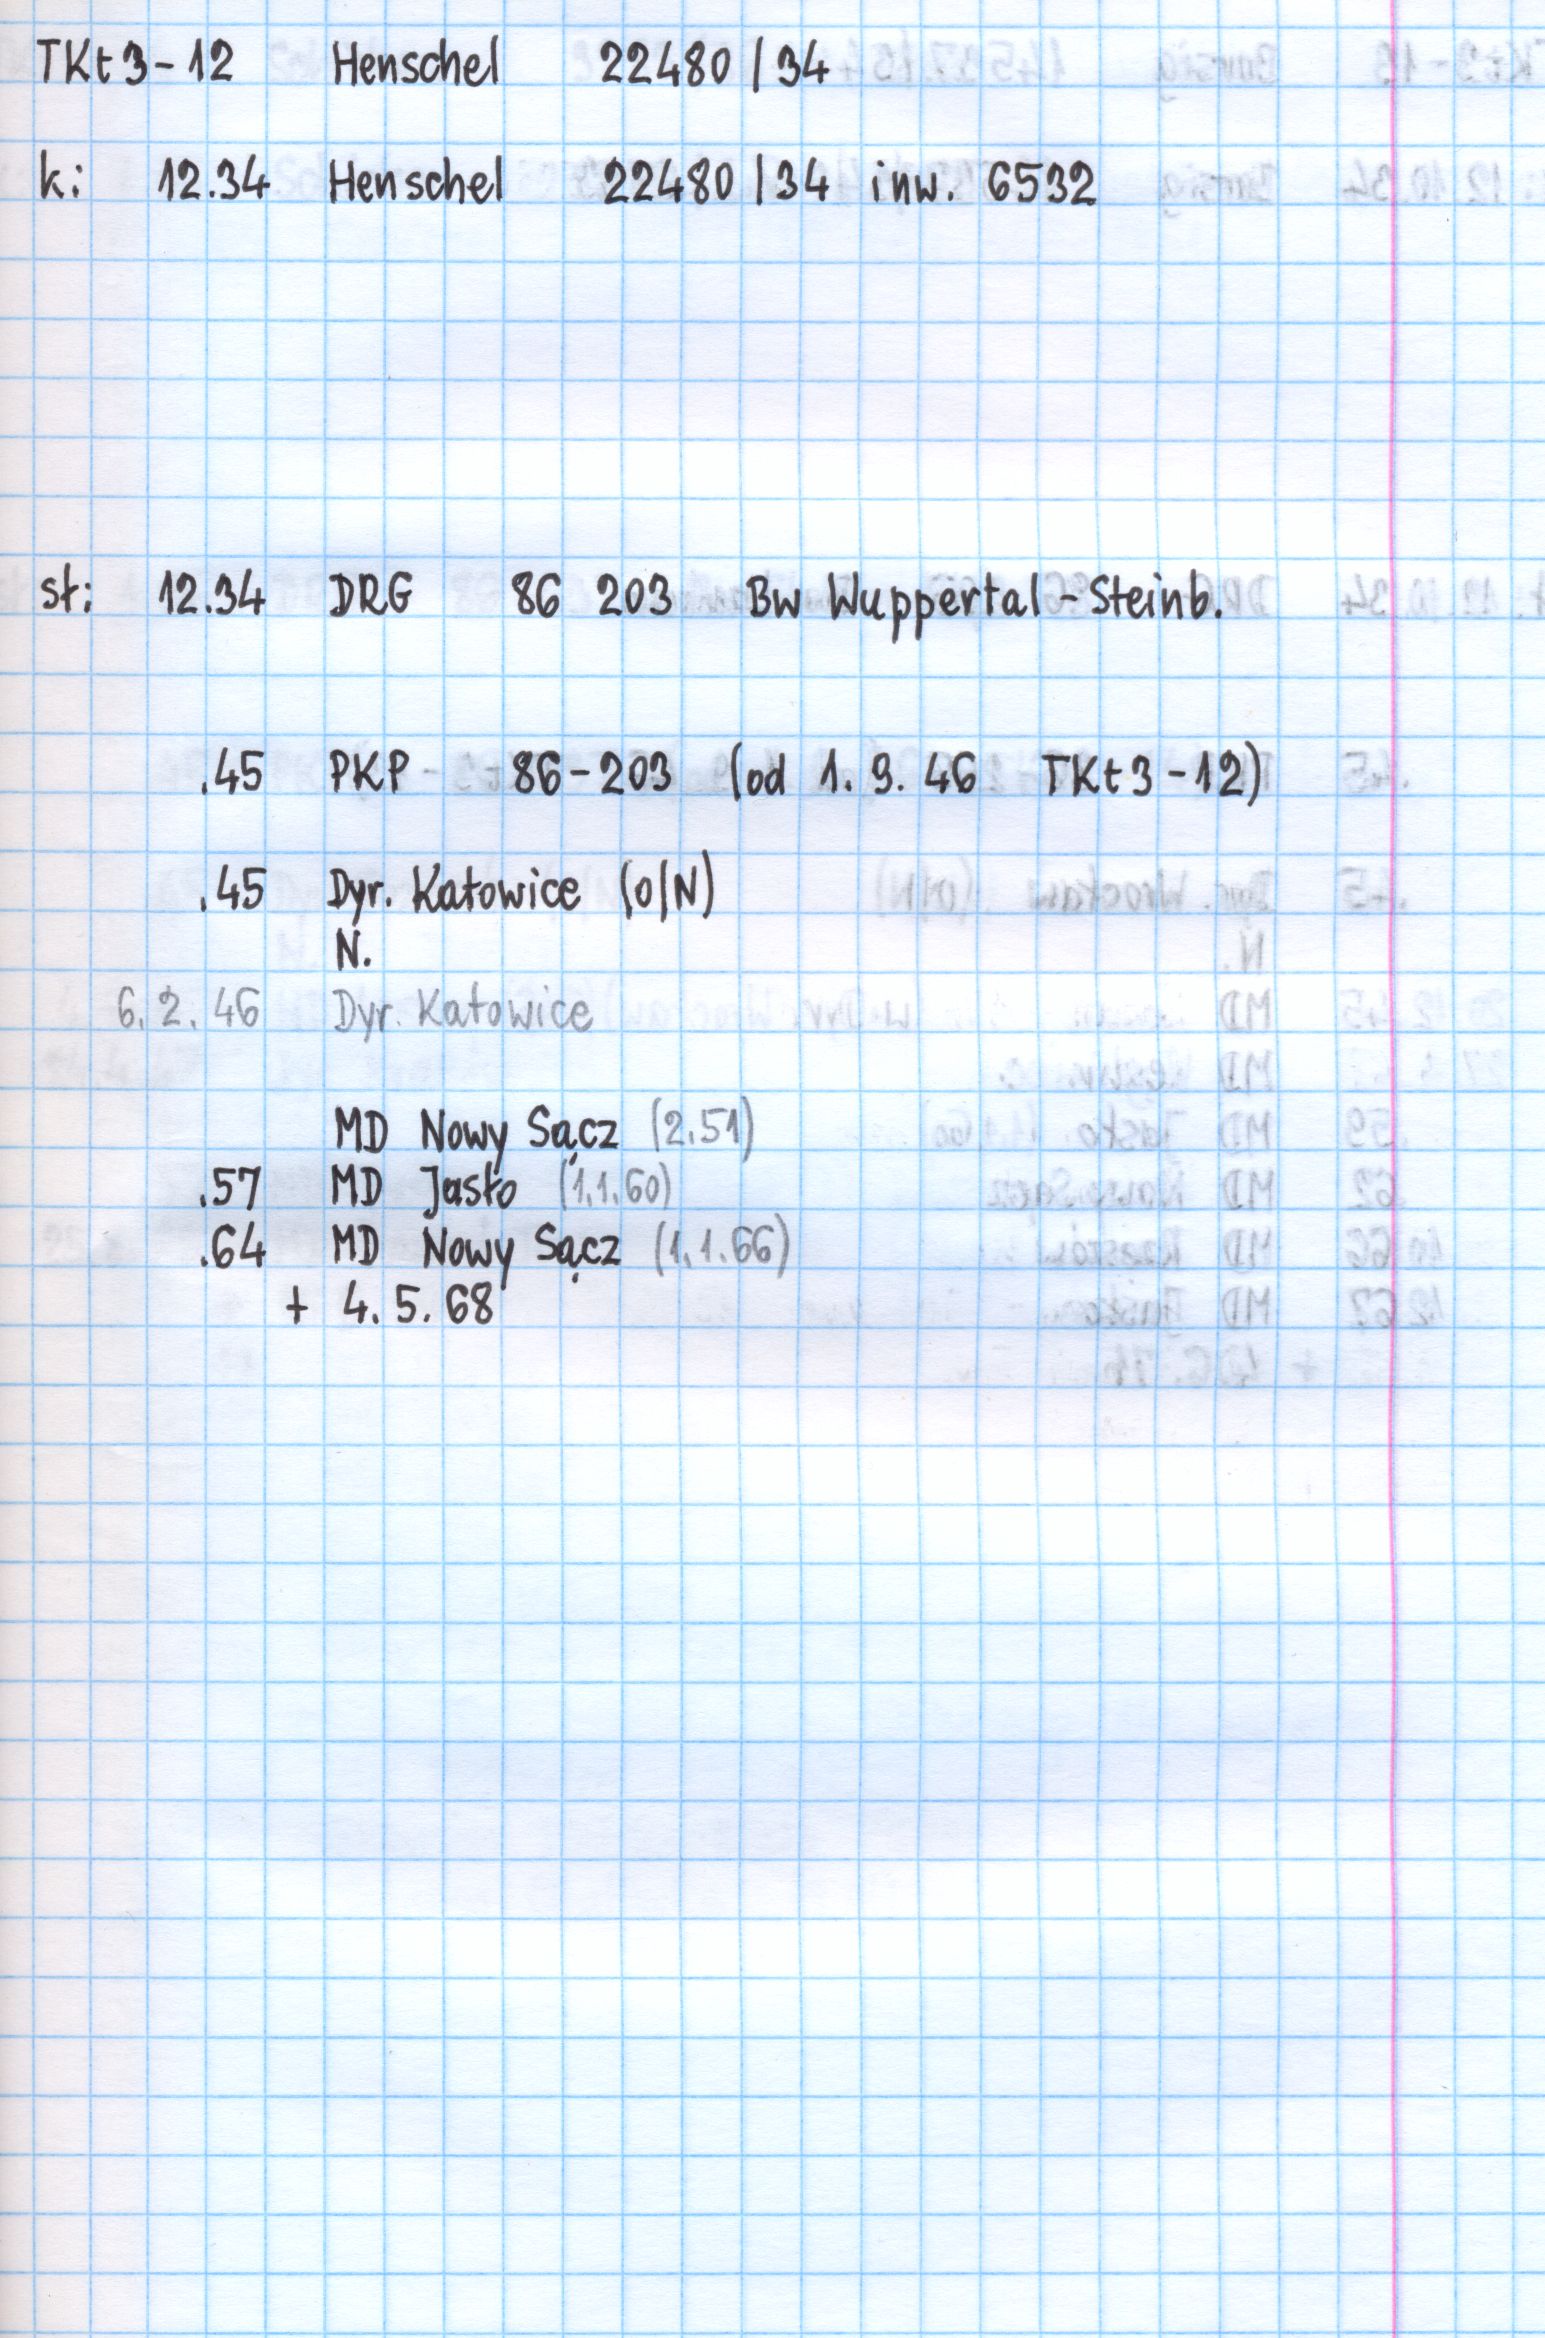 TKt3-12 Henschel 22480/34
k: 12.34 Henschel 22480/34 inw. 6532
st: 12.34 DRG 86 203 Bw Wuppertal-Steinb.
.45 PKP 86-203 (od 1.9.46 TKt3-12)
.45 Dyr. Katowice (O/N)
N.
6.2.46 Dyr. Katowice
MD Nowy Sącz (2.51)
.57 MD Jasło (1.1.60)
.64 MD Nowy Sącz (1.1.66)
+ 4.5.68